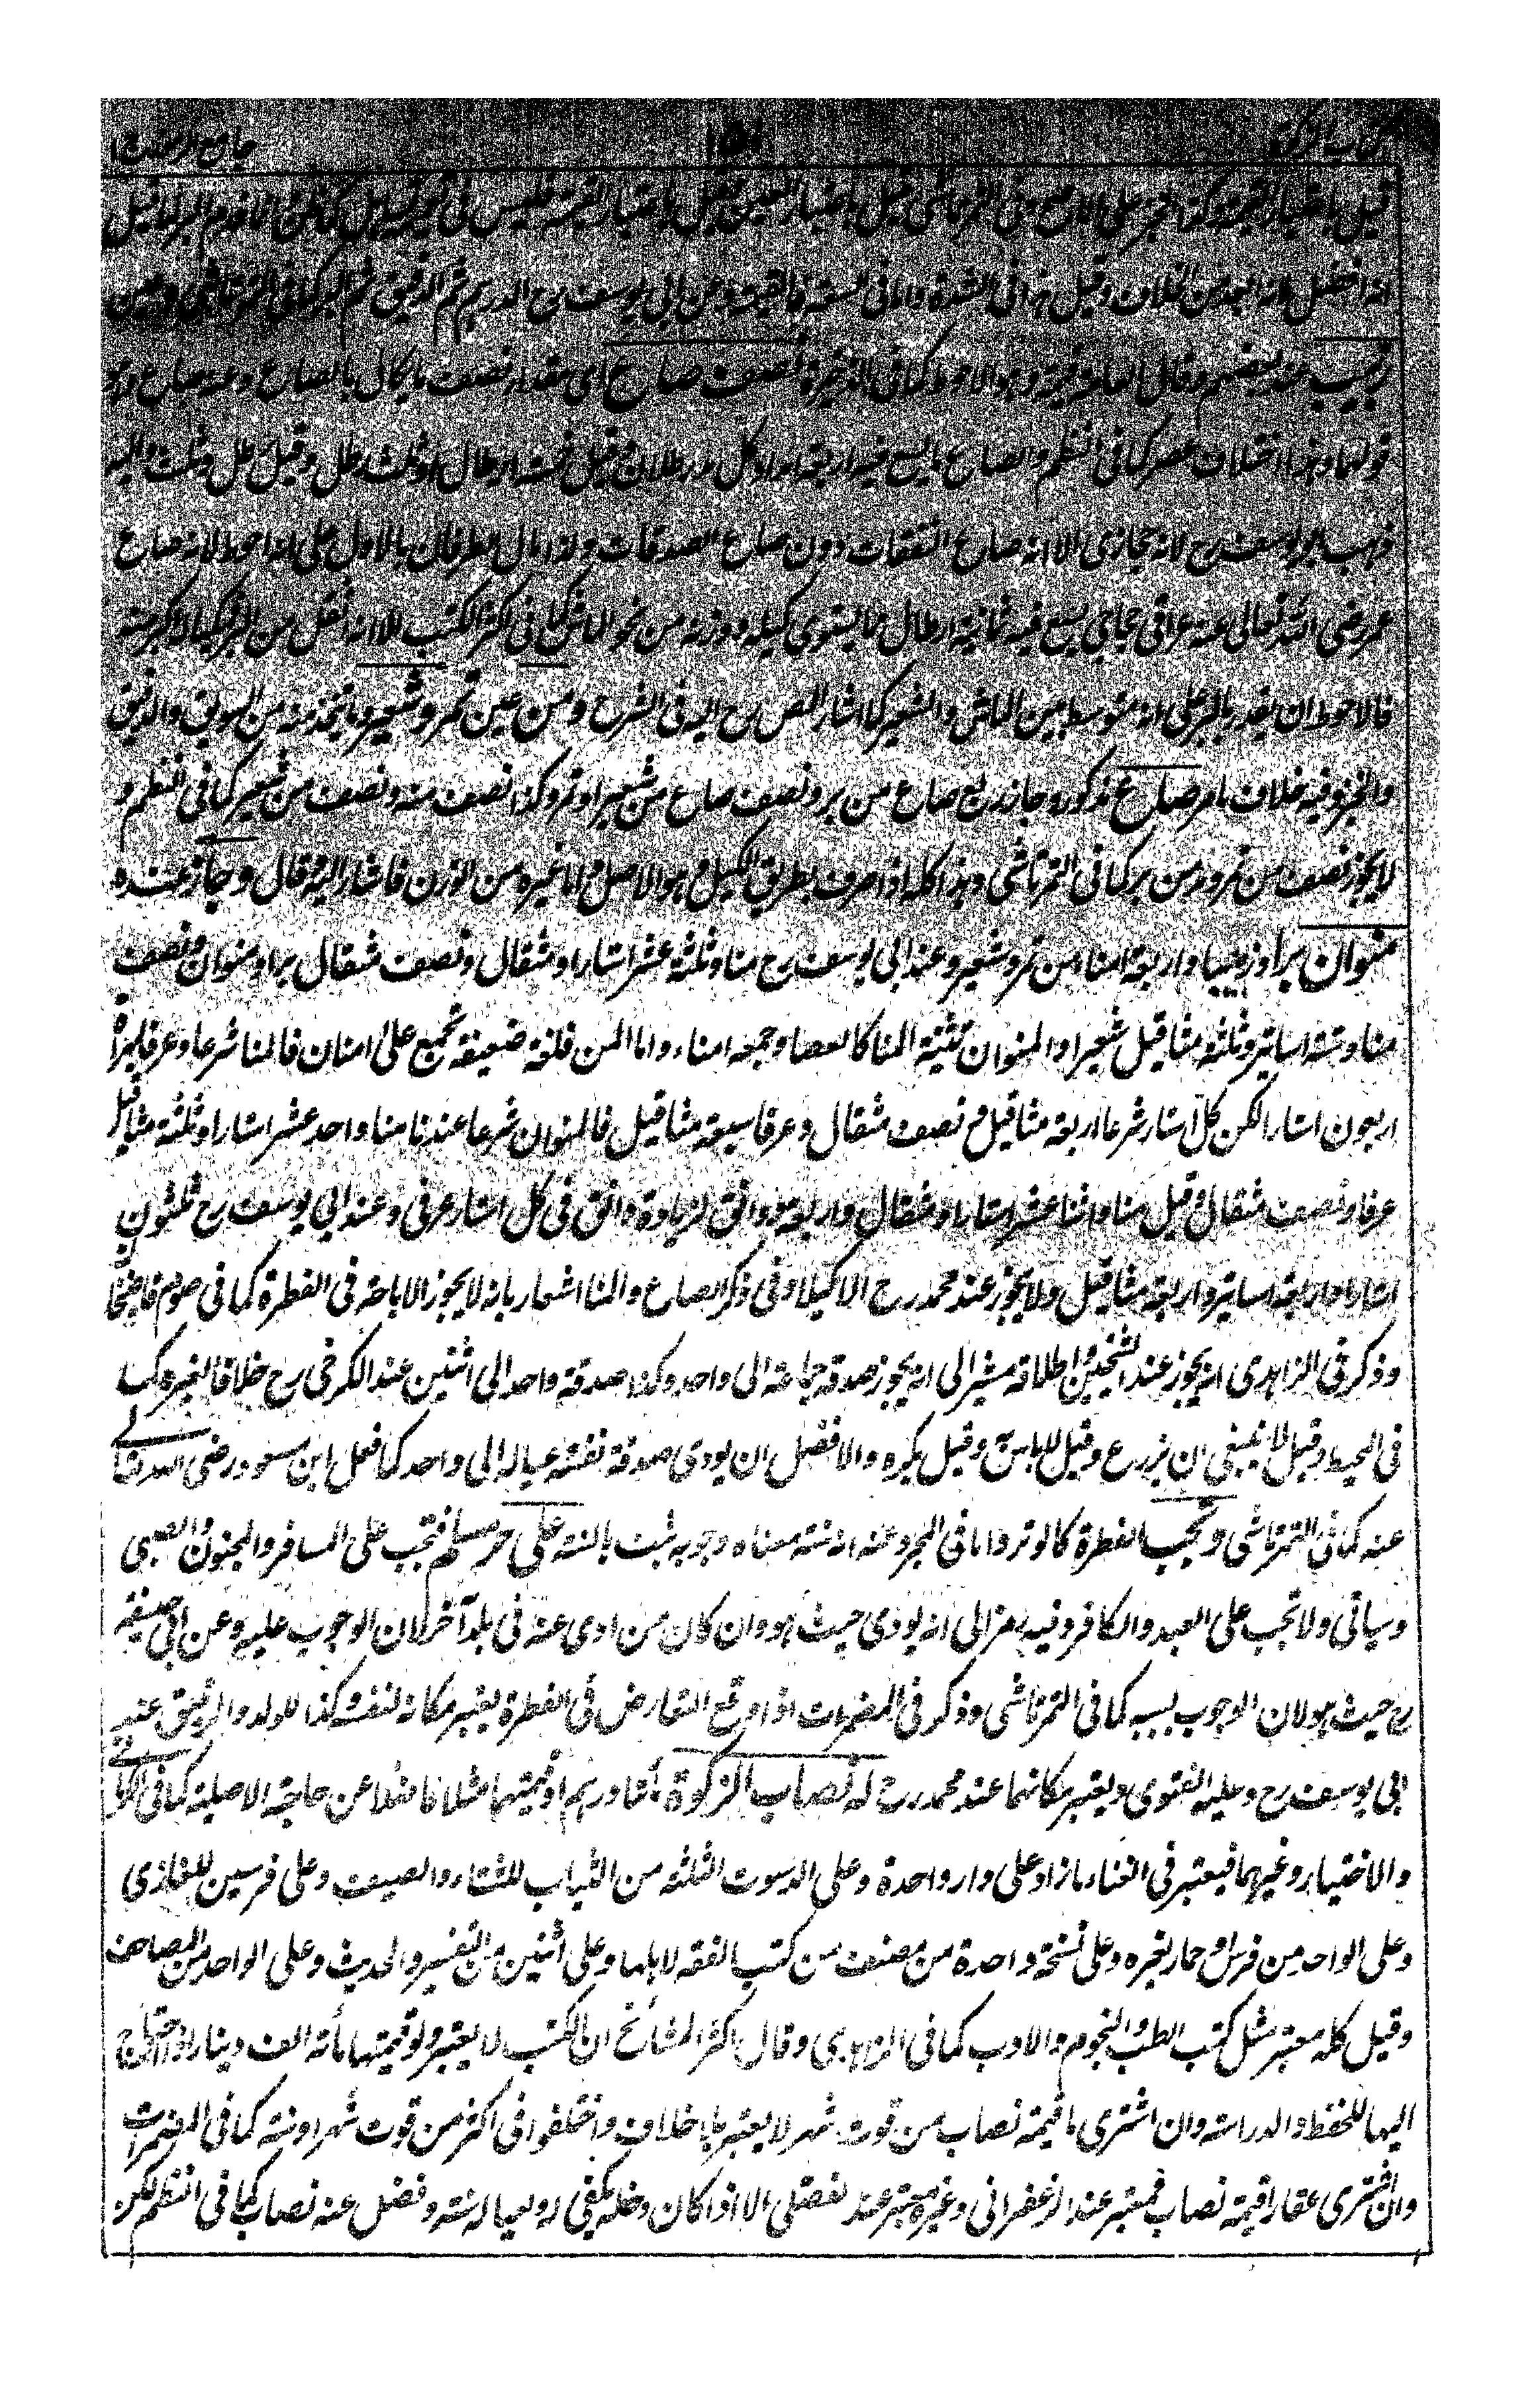 كتاب الزكوة
جامع الرموز
قيل باعتبار القيمة وكذا الخبز على الاصح وفي التمرتاشي قيل باعتبار العين وقيل باعتبار القيمة فليس في اما فدم البر لما قيل
انه افضل لانه ابعد من الخلاف وقيل هذا في الشدة واما في السعة فالقيمة وعن ابي يوسف رح الدرهم ثم الدقيق ثم البر كما في التمرتاشي او من
زبيب عند بعضهم وقال العامة قيمة وهو الاحوط كما في الذخيرة نصف صاع اى مقدار نصف ما يكال بالصاع وعنه صاع وهو
قولهما وهذا اختلاف عصر كما في النظم والصاع ما يسع فيه اربعة امداد كل مد رطلان وقيل خمسة ارطال وثلث رطل وقيل رطل وثلث واليه
ذهب ابو يوسف رح لانه حجازى الا انه صاع النفقات دون صاع الصدقات ولذا مال الطرفان بالاول على انه احوط لانه صاع
عمر رضى الله تعالى عنه عراقي حجاجي يسع فيه ثمانية ارطال مما يستوى كيله ووزنه من نحو الماش كما في اكثر الكتب الا انه اثقل من البر كيلا اكبر منه
فالاحوط ان يقدر بالبر على انه متوسط بين الماش والشعير كما اشار المص رح اليه في الشرح ومن عين تمر وشعير وما يتخذ منه من السويق والدقيق
والخبز وفيه خلاف ما مر صاع مذكور وجاز ربع صاع من بر ونصف صاع من شعير او تمر وكذا نصف منه ونصف من شعير كما في النظم و
لا يجوز نصف من تمر ومد من بر كما في التمرتاشي وهذا كله اذا صرف بطريق الكيل وهو الاصل ولا غيره من الوزن فاشار اليه وقال وجاز عنده
منوان برا وزبيبا واربعة امناء من تمر وشعير وعند ابي يوسف رح منا وثلثة عشر استارا ومثقال ونصف مثقال برا ومنوان ونصف
منا وستة اساتير وثلثة مثاقيل شعيرا والمنوان تثنية المنا كالعصا وجمعه امناء واما المن فلغة ضعيفة تجمع على امنان فالمنا شرعا وعرفا هراة
اربعون استارا لكن كل استار شرعا اربعة مثاقيل ونصف مثقال وعرفا سبعة مثاقيل فالمنوان شرعا عندنا منا واحد عشر استارا وثلثة مثاقيل
عرفا ونصف مثقال وقيل منا واثنا عشر استارا ومثقال واربعة دوانق لزيادة دانق في كل استار عرفي وعند ابي يوسف رح ثلثون
استارا واربعة اساتير واربعة مثاقيل ولا يجوز عند محمد رح الا كيلا وفي ذكر الصاع والمنا اشعار بانه لا يجوز الاباحة في الفطرة كما في صوم قاضيخان
وذكر في الزاهدى انه يجوز عند الشيخين واطلاقه مشير الى انه يجوز صدقة جماعة الى واحد وكذا صدقة واحد الى اثنين عند الكرخي رح خلافا لغيره كما
في المحيط وقيل لا ينبغي ان يزرع وقيل لا باس به وقيل يكره والافضل ان يودى صدقة نفسه وعياله الى واحد كما فعل ابن مسعود رضى الله تعالى
عنه كما في التمرتاشي وتجب الفطرة كالوتر واما في المجرد عنه انه سنة معناه وجوبه ثبت بالسنة على حر مسلم فتجب على المسافر والمجنون والصبي
وسياتي ولا تجب على العبد والكافر وفيه رمز الى انه يودى حيث هو وان كان من ادى عنه في بلد آخر لان الوجوب عليه وعن ابي حنيفة
رح حيث هو لان الوجوب بسببه كما في التمرتاشي وذكر في المضمرات اذا وقع التعارض في الفطرة يعتبر مكانه لنفسه وكذا للولد والرقيق عند
ابي يوسف رح وعليه الفتوى ويعتبر مكانهما عند محمد رح له نصاب الزكوة مأتا درهم او قيمتها مثلا فاضلا عن حاجته الاصلية كما في الكافي
والاختيار وغيرهما فيعتبر في الغناء ما زاد على دار واحدة وعلى الدسوت الثلثة من الثياب للشتاء والصيف وعلى فرسين للغازى
وعلى الواحد من فرس او حمار لغيره وعلى نسخة واحدة من مصنف من كتب الفقه لاهلها وعلى اثنين من التفسير والحديث وعلى الواحد من المصاحف
وقيل كله معتبر مثل كتب الطب والنجوم والادب كما في الزاهدى وقال اكثر المشائخ ان الكتب لا يعتبر ولو قيمتها مأتة الف دينار اذا احتاج
اليها للحفظ والدراسة وان اشترى ما قيمته نصاب من قوت شهر لا يعتبر بلا خلاف واختلفوا في اكثر من قوت شهر او سنة كما في المضمرات
وان اشترى عقارا قيمته نصاب فمعتبر عند الزعفراني وغير معتبر عند الا اذا كان دخله يكفي له ولعياله سنة وفضل عنه نصاب كما في النظم لكن